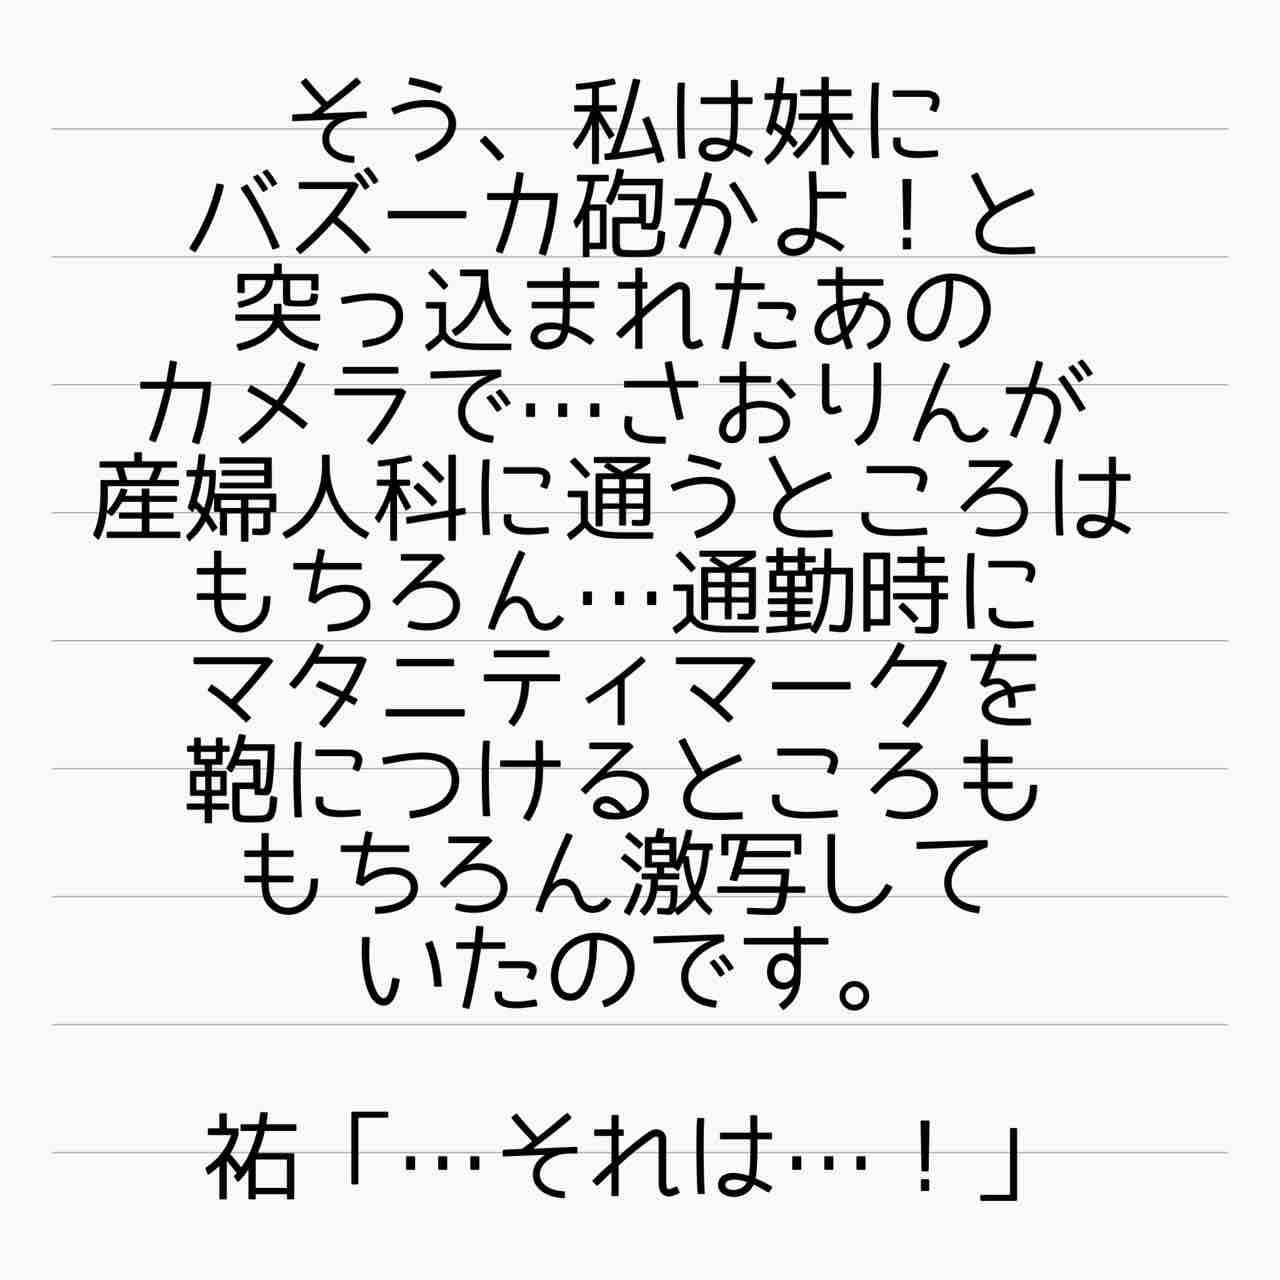 そう、私は妹に
バズーカ砲かよ！と
突っ込まれたあの
カメラで…さおりんが
産婦人科に通うところは
もちろん…通勤時に
マタニティマークを
鞄につけるところも
もちろん激写して
いたのです。
祐「…それは…！」